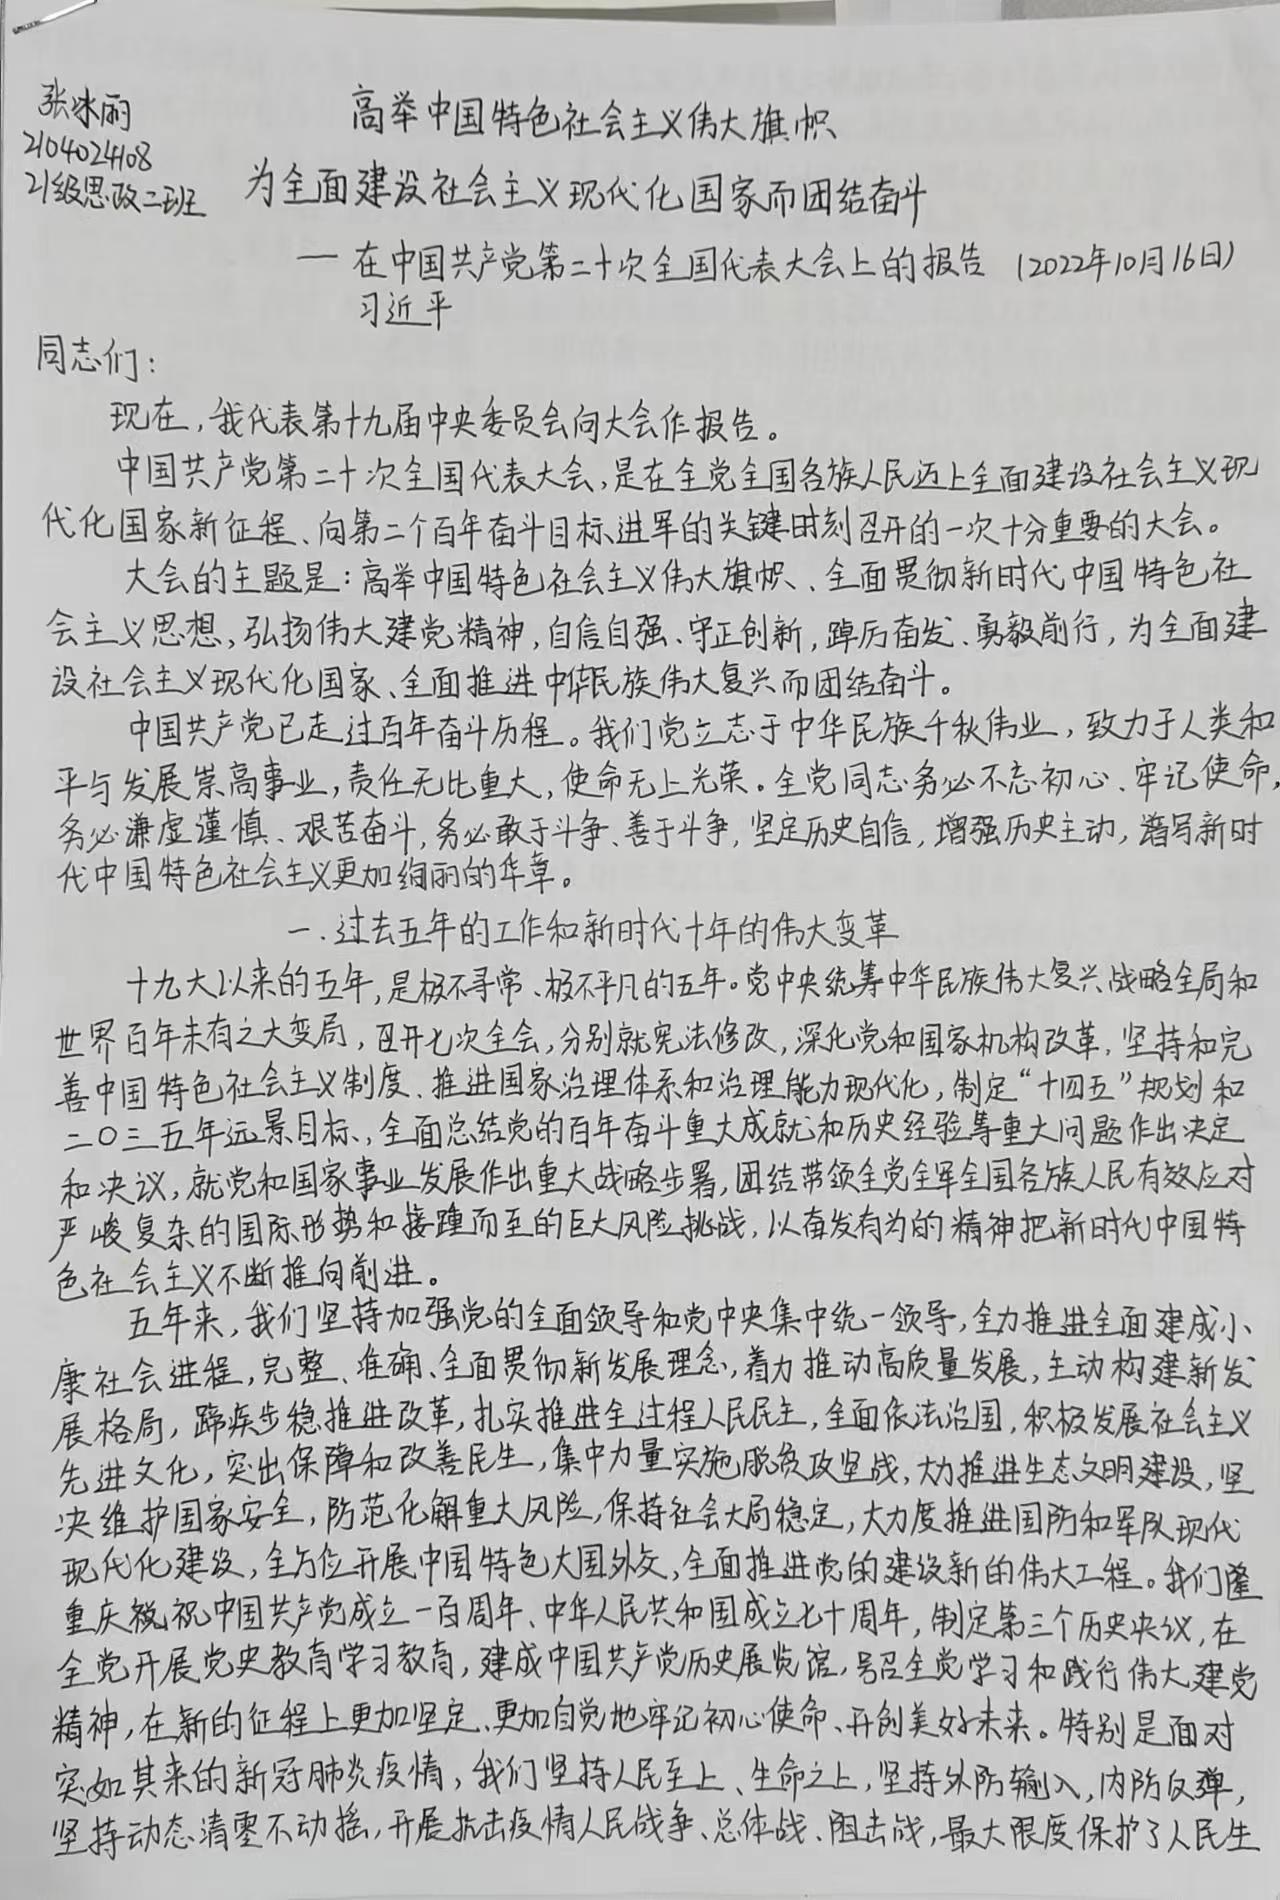 张冰丽
2104024108
21级思政二班
高举中国特色社会主义伟大旗帜
为全面建设社会主义现代化国家而团结奋斗
— 在中国共产党第二十次全国代表大会上的报告 (2022年10月16日)
习近平
同志们:
现在,我代表第十九届中央委员会向大会作报告。
中国共产党第二十次全国代表大会,是在全党全国各族人民迈上全面建设社会主义现
代化国家新征程、向第二个百年奋斗目标进军的关键时刻召开的一次十分重要的大会。
大会的主题是:高举中国特色社会主义伟大旗帜、全面贯彻新时代中国特色社
会主义思想,弘扬伟大建党精神,自信自强、守正创新,踔厉奋发、勇毅前行,为全面建
设社会主义现代化国家、全面推进中华民族伟大复兴而团结奋斗。
中国共产党已走过百年奋斗历程。我们党立志于中华民族千秋伟业,致力于人类和
平与发展崇高事业,责任无比重大,使命无上光荣。全党同志务必不忘初心、牢记使命,
务必谦虚谨慎、艰苦奋斗,务必敢于斗争、善于斗争,坚定历史自信,增强历史主动,谱写新时
代中国特色社会主义更加绚丽的华章。
一、过去五年的工作和新时代十年的伟大变革
十九大以来的五年,是极不寻常、极不平凡的五年。党中央统筹中华民族伟大复兴战略全局和
世界百年未有之大变局,召开七次全会,分别就宪法修改,深化党和国家机构改革,坚持和完
善中国特色社会主义制度、推进国家治理体系和治理能力现代化,制定“十四五”规划和
二〇三五年远景目标、全面总结党的百年奋斗重大成就和历史经验等重大问题作出决定
和决议,就党和国家事业发展作出重大战略步署,团结带领全党全军全国各族人民有效应对
严峻复杂的国际形势和接踵而至的巨大风险挑战,以奋发有为的精神把新时代中国特
色社会主义不断推向前进。
五年来,我们坚持加强党的全面领导和党中央集中统一领导,全力推进全面建成小
康社会进程,完整、准确、全面贯彻新发展理念,着力推动高质量发展,主动构建新发
展格局,蹄疾步稳推进改革,扎实推进全过程人民民主,全面依法治国,积极发展社会主义
先进文化,突出保障和改善民生,集中力量实施脱贫攻坚战,大力推进生态文明建设,坚
决维护国家安全,防范化解重大风险,保持社会大局稳定,大力度推进国防和军队现代
现代化建设,全方位开展中国特色大国外交,全面推进党的建设新的伟大工程。我们隆
重庆祝祝中国共产党成立一百周年、中华人民共和国成立七十周年,制定第三个历史决议,在
全党开展党史教育学习教育,建成中国共产党历史展览馆,号召全党学习和践行伟大建党
精神,在新的征程上更加坚定、更加自觉地牢记初心使命、开创美好未来。特别是面对
突如其来的新冠肺炎疫情,我们坚持人民至上、生命之上,坚持外防输入,内防反弹,
坚持动态清零不动摇,开展抗击疫情人民战争、总体战、阻击战,最大限度保护了人民生